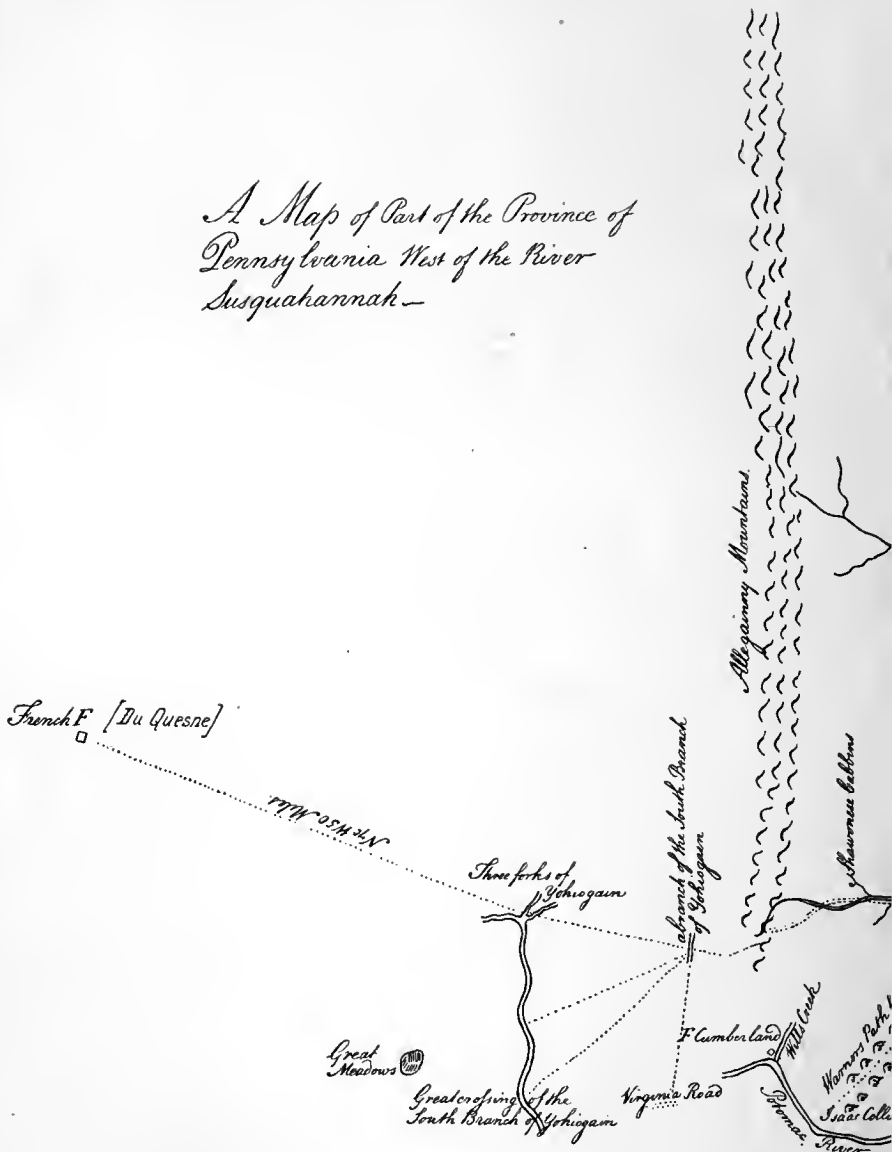 A Map of Part of the Province of
Pennsylvania West of the River
Susquahannah—
Allegainny Mountains.
French F [Du Quesne]
Miles
Three forks of
Yohiogain
abranch of the South Branch
of Yohiogain
Shawonese Cabbins
Great
Meadows
Great crossing of the
South Branch of Yohiogain
Virginia Road
F Cumberland
Wills Creek
Potomac
River
Warriors Path
Isaac